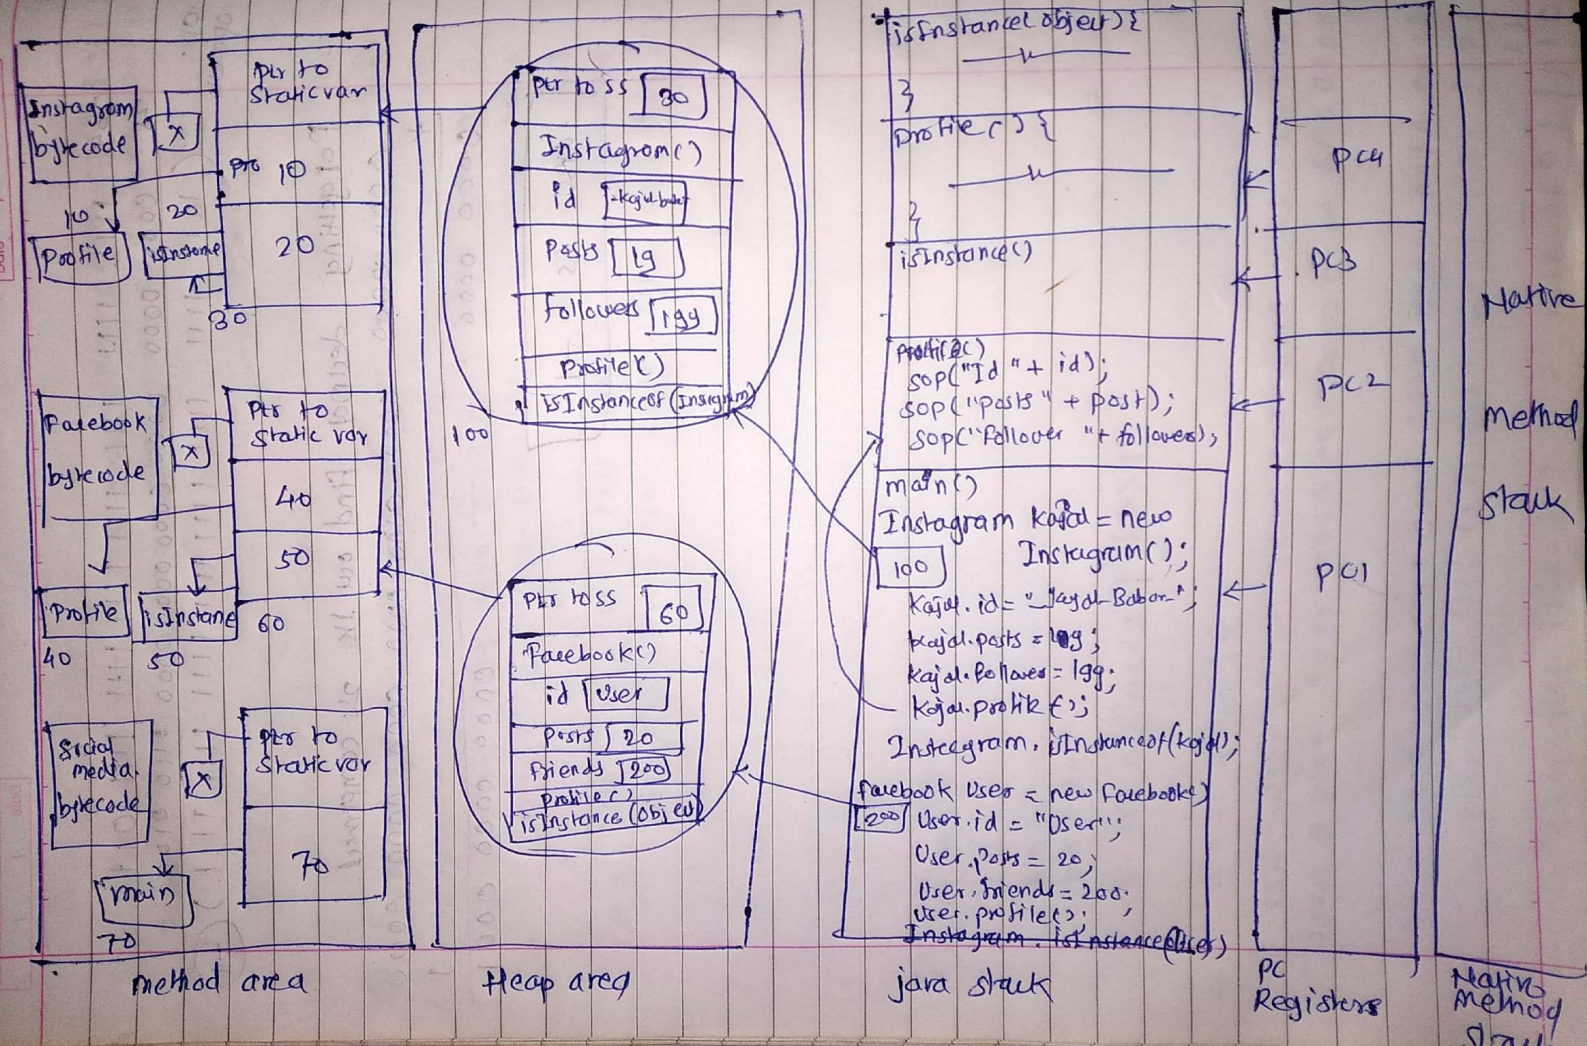 Instagram
bytecode
x
ptr to
Static var
pro 10
20
10
20
Profile
isInstane
30
Facebook
bytecode
x
Ptr to
Static var
40
50
Profile
isInstane
60
40
50
Social
media
bytecode
x
ptr to
Static var
70
main
70
method area
ptr to ss 30
Instagram()
id
Posts 19
Followers 199
Profile()
isInstanceof(Instagram)
100
Ptr to ss 60
Facebook()
id User
Posts 20
friends 200
Profile()
isInstance(Object)
Heap area
isInstance(object){
}
Profile(){
}
isInstance()
Profile()
sop("Id "+ id);
sop("posts" + post);
sop("Follower "+ followers);
main()
Instagram Kajal = new
Instagram();
100
Kajal.id=
Kajal.posts = 19;
Kajal.followers = 199;
Kajal.profile();
Instagram.isInstanceof(kajal);
facebook User = new facebook()
200 User.id = "User";
User.posts = 20;
User.friends = 200;
User.profile();
Instagram.isInstance(User)
java stack
PC4
PC3
PC2
PC1
PC
Registers
Native
method
stack
Native
method